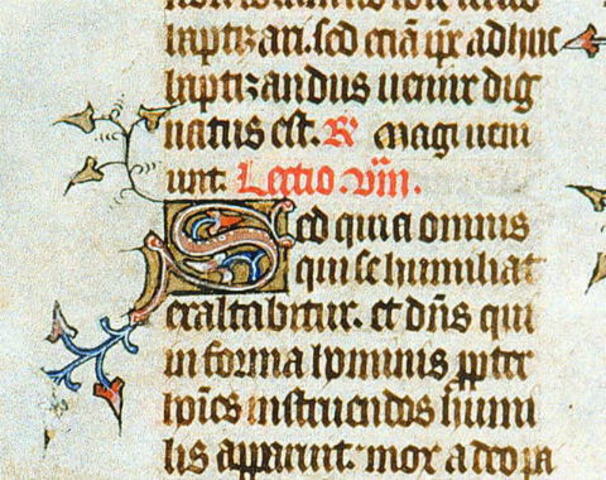 baptizari. sed etiā ip̄e adhuc
baptizandus uenire dig
natus est. R̄ Magi ueni
unt. Lectio .viii.
Sed quia omnis
qui se humiliat
exaltabitur. et dn̄s qui
in forma hominis ꝓpter
hoīes instruendos humi
lis apparuit. mox a deo pa